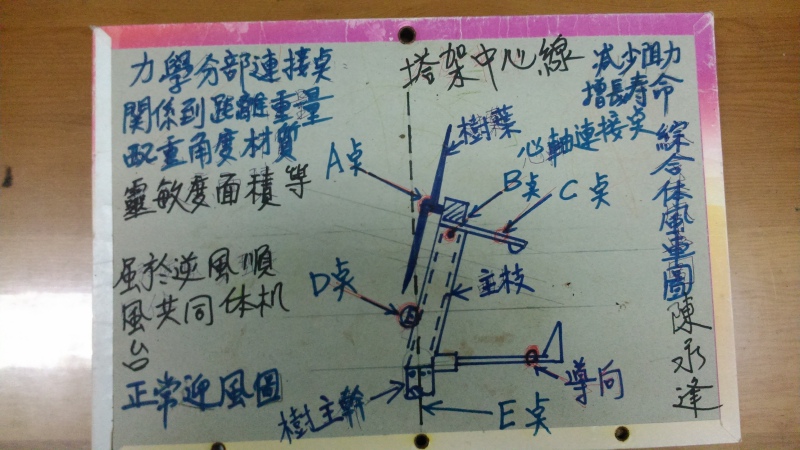 力學分部連接桌
關係到距離重量
配重角度材質
靈敏度面積等
虽於逆風順
風共同体机
台
正常迎風圖
塔架中心線
减少阻力
增長寿命
樹葉
心軸連接桌
A桌
B桌
C桌
主枝
D桌
導向
樹主幹
E桌
綜合体風車圖
陳永逢